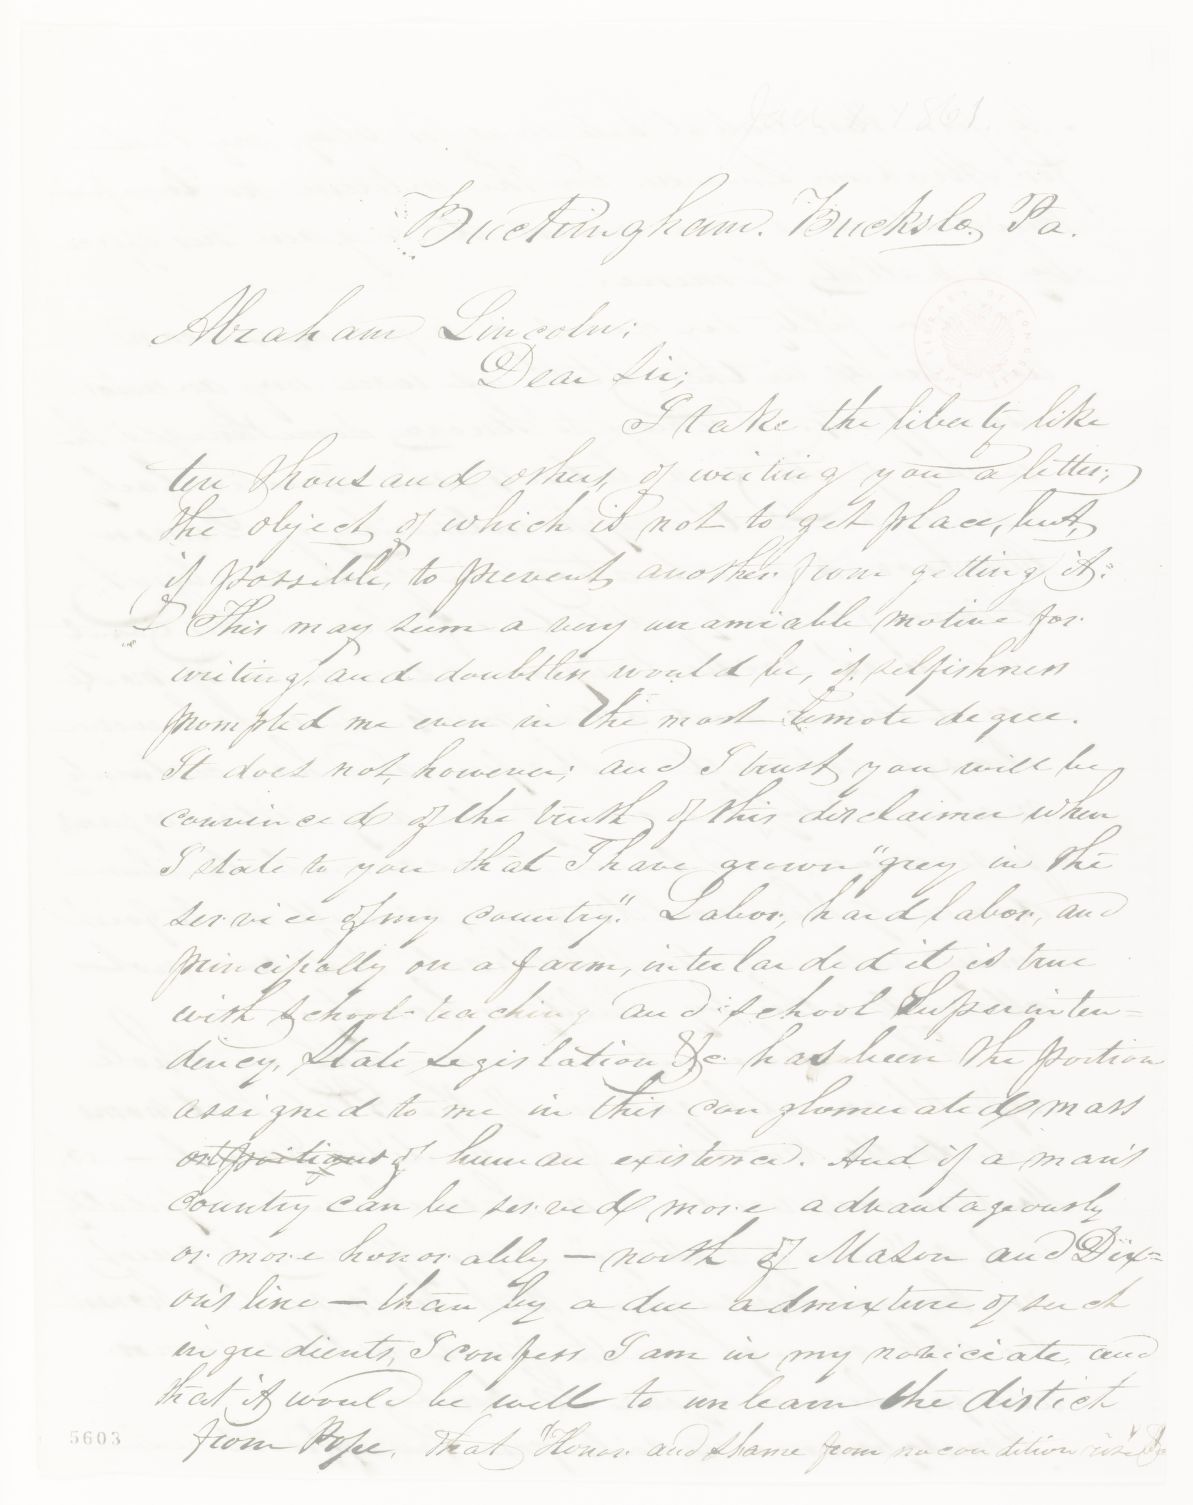 Jan 1861.
Buckingham. Bucks Co. Pa.
Abraham Lincoln;
Dear Sir;
I take the liberty like
ten thousand others, of writing you a letter;
the object of which is not to get place, but,
if possible, to prevent another from getting it.
This may seem a very unamiable motive for
writing, and doubtless would be, if selfishness
prompted me even in the most remote degree.
It does not, however; and I trust you will be
convinced of the truth of this disclaimer when
I state to you that I have grown "grey in the
service of my country". Labor, hard labor, and
principally on a farm, interlarded it is true
with school-teaching and school Superinten=
dency, State Legislation &c. has been the portion
assigned to me in this conglomerated mass
of human existence. And if a man's
country can be served more advantageously
or more honorably — north of Mason and Dix=
on's line — than by a due admixture of such
ingredients, I confess I am in my noviciate, and
that it would be well to unlearn the distich
from Pope, that "Honor and shame from no condition rise" &c
5603